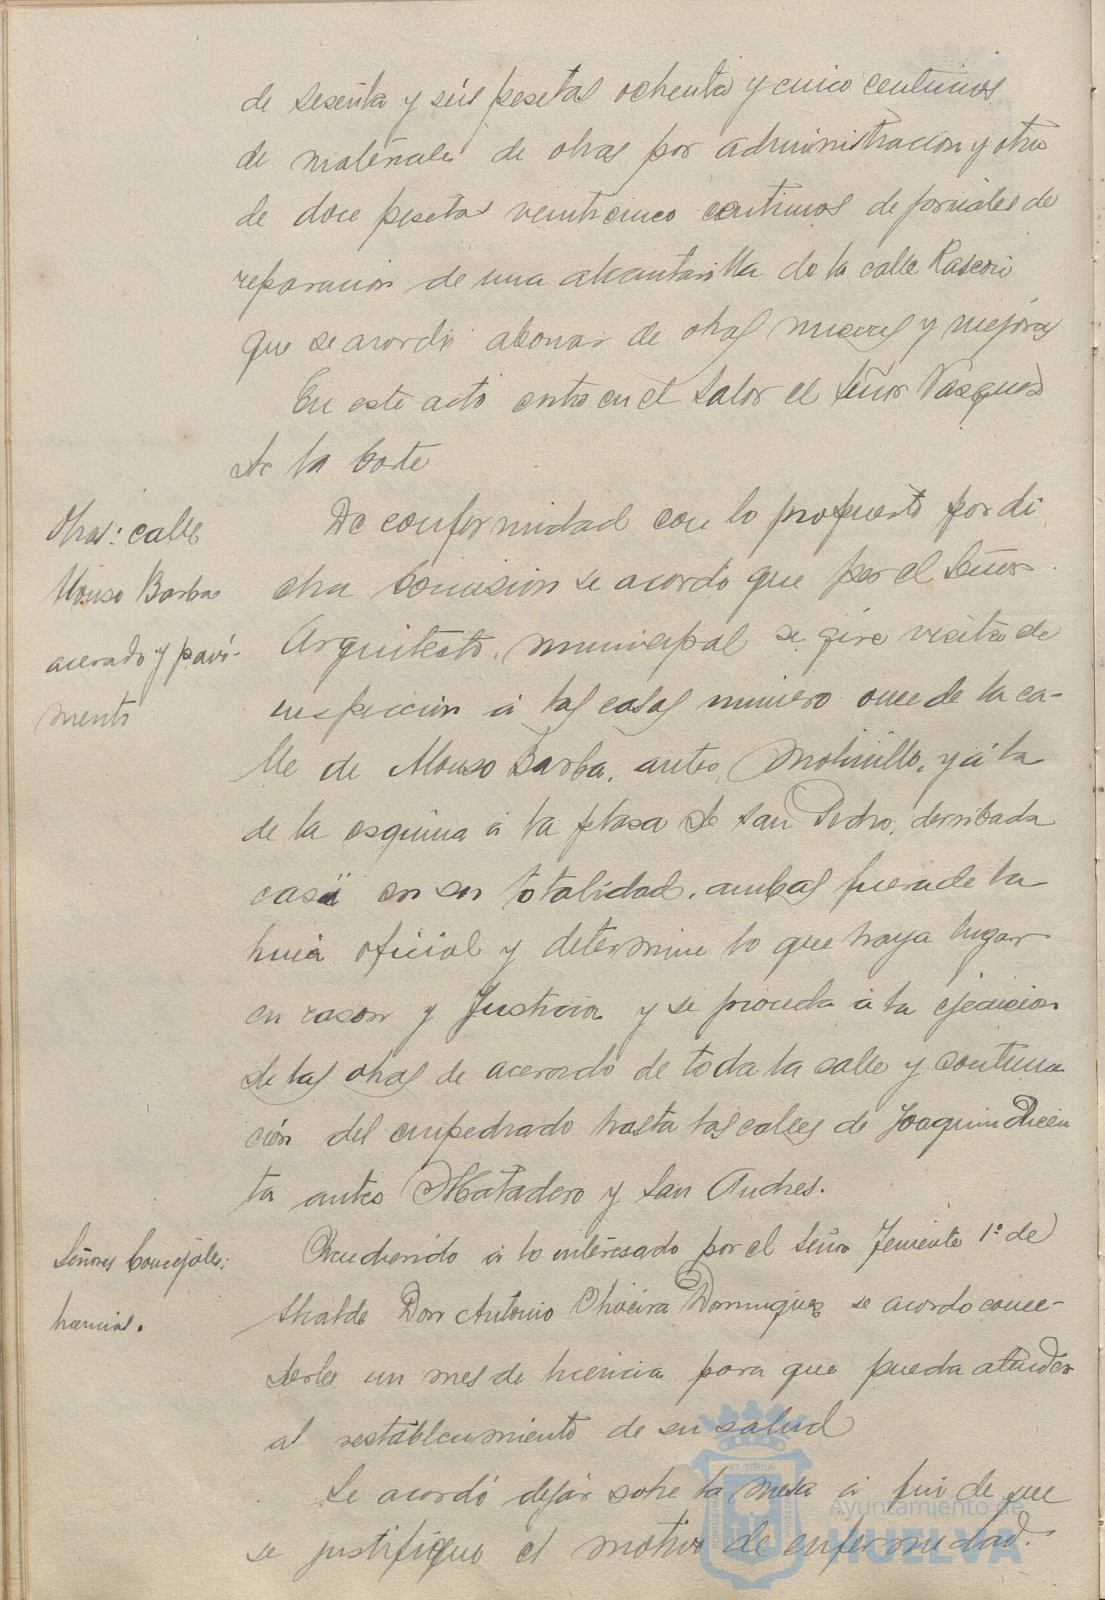 de sesenta y séis pesetas ochenta y cinco centimos
de materiales de obras por administracion y otra
de doce pesetas veinticinco centimos de jornales de
reparacion de una alcantarilla de la calle Rascon
que se acordó abonar de obras nuevas y mejoras
En este acto entra en el Salon el Señor Vasquez
de la Corte
Obras: calle
Alonso Barba
acerado y pavi-
mento
De conformidad con lo propuesto por di
cha Comision se acordó que por el Señor
Arquitecto municipal se gire visita de
inspeccion á las casas numero once de la ca-
lle de Alonso Barba, antes Molinillo, y á la
de la esquina á la plasa de San Pedro, derribada
casi en su totalidad, ambas fuera de la
linea oficial y determine lo que haya lugar
en rason y Justicia y se proceda á la ejecucion
de las obras de acerado de toda la calle y continua
ción del empedrado hasta las calles de Joaquin Dicen
ta antes Matadero y San Andres.
Señores Concejales:
licencias.
Accediendo á lo interesado por el Señor Teniente 1º de
Alcalde Don Antonio Oliveira Dominguez se acordo conce-
derle un mes de licencia para que pueda atender
al restablecimiento de su salud
Se acordó dejar sobre la mesa á fin de que
se justifique el motivo de enfermedad.
Ayuntamiento de
HUELVA